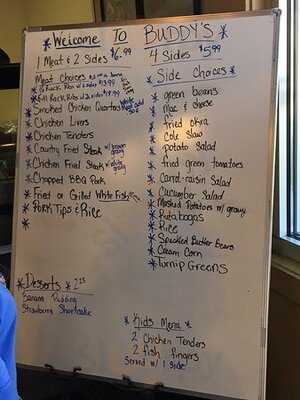 * Welcome To BUDDY'S *
1 Meat & 2 Sides $6.99
4 Sides $5.99
Meat Choices
* Smoked Chicken Quarters
* Chicken Livers
* Chicken Tenders
* Country Fried Steak w/ brown gravy
* Chicken Fried Steak w/ white gravy
* Chopped BBQ Pork
* Fried or Grilled White Fish
* PORK Tips & Rice
*
* Side Choices *
* green beans
* mac & cheese
* fried okra
* Cole Slaw
* potato Salad
* fried green tomatoes
* Carrot-raisin Salad
* Cucumber Salad
* Mashed Potatoes w/ gravy
* Rutabagas
* Rice
* Speckled Butter Beans
* Cream Corn
* Turnip Greens
* Desserts *
Banana Pudding
Strawberry Shortcake
* Kids Menu *
2 Chicken Tenders
2 fish fingers
Served w/ 1 side